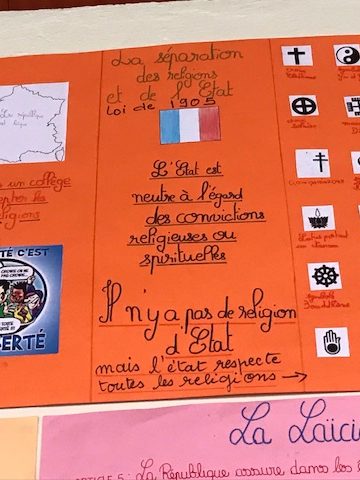 La séparation
des religions
et de l'Etat
loi de 1905
L'Etat est
neutre à l'égard
des convictions
religieuses ou
spirituelles
Il n'y a pas de religion
d'Etat
mais l'état respecte
toutes les religions →
La république
est laïque
s un collège
religions
TÉ C'EST
CROIRE OU NE
PAS CROIRE
ERTÉ
La Laïci
La République assure dans les